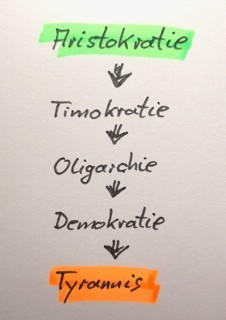 Aristokratie
Timokratie
Oligarchie
Demokratie
Tyrannis